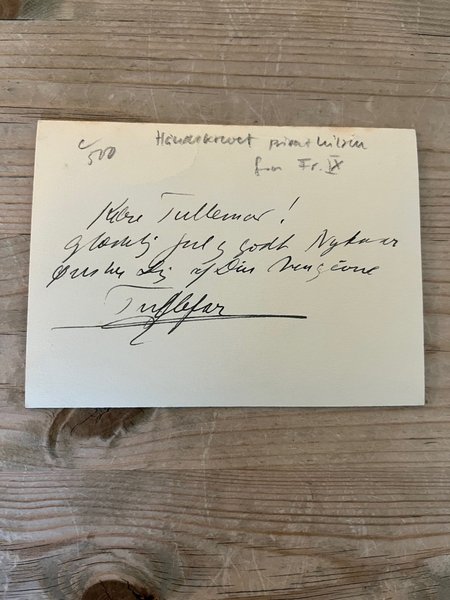 c/500
Håndskrevet privat hilsen
fra Fr. IX
Kære Tullemor!
glædelig Jul og godt Nytaar
ønskes Dig af Din hengivne
Tullefar